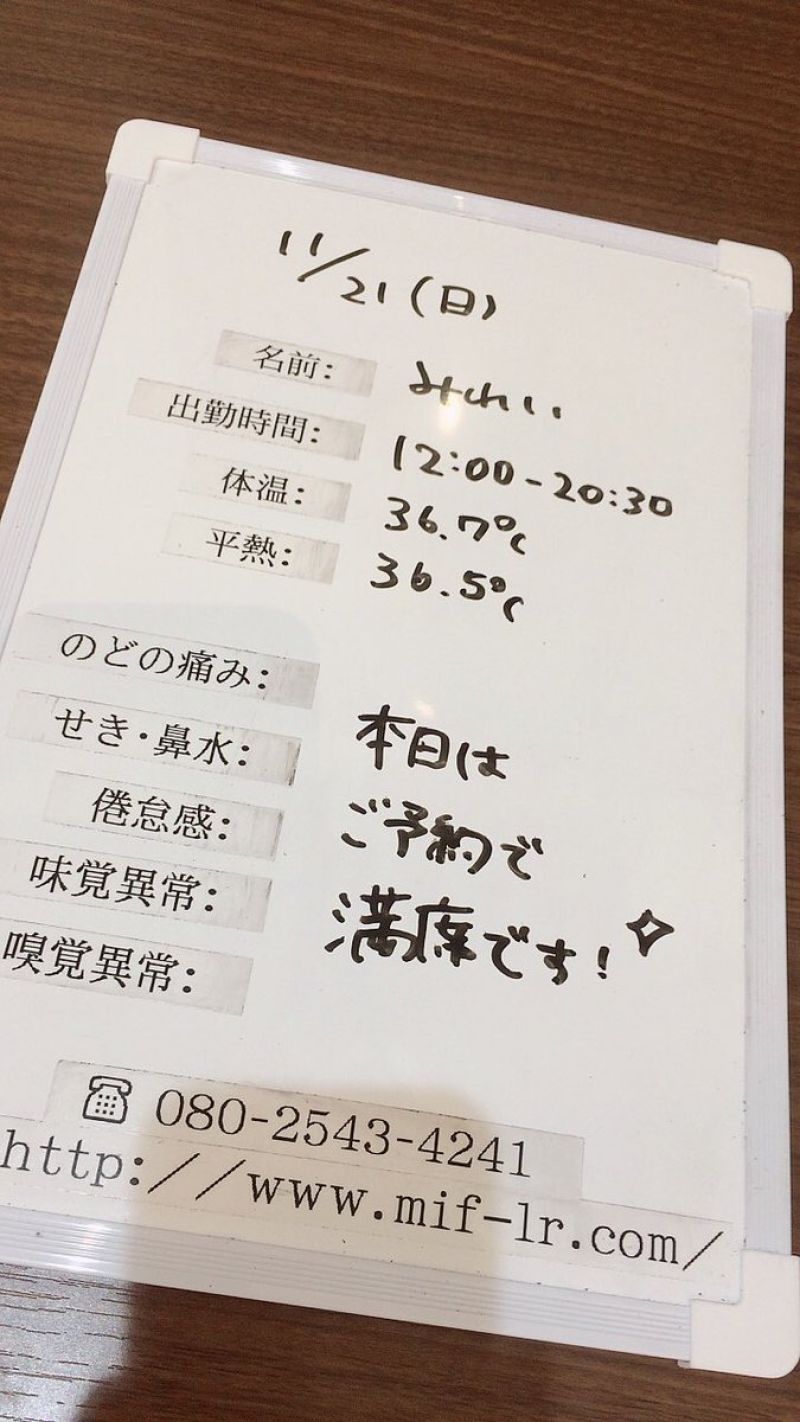 11/21(日)
名前: みれい
出勤時間: 12:00-20:30
体温: 36.7℃
平熱: 36.5℃
のどの痛み:
せき・鼻水: 本日は
倦怠感: ご予約で
味覚異常: 満席です!
嗅覚異常:
☏ 080-2543-4241
http://www.mif-lr.com/